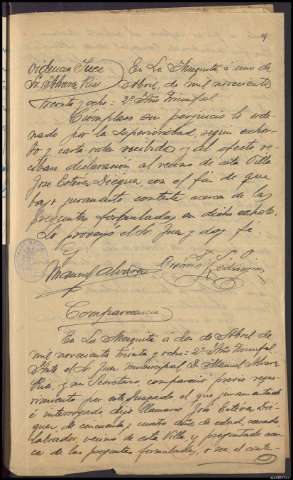 Providencia Juez
Sr. Alvarez Rua
En La Mezquita á uno de
Abril de mil novecientos
treinta y ocho = 2º Año Triunfal.
Cumplase sin perjuicio lo orde-
nado por la Superioridad, según exhor-
to y carta orden recibidos y al efecto re-
cibase declaración al vecino de esta Villa
Jose Estevez Dieguez, con el fin de que
bajo juramento conteste acerca de las
preguntas formuladas en dicho exhorto.
Lo proveyó el Sr. Juez y doy fe.
Manuel Alvarez
Comparecencia
En La Mezquita á dos de Abril de
mil novecientos treinta y ocho = 2º Año Triunfal.
Ante el Sr. Juez municipal D. Manuel Alvarez
Rua, y su Secretario compareció previo reque-
rimiento por este Juzgado el que juramentado
é interrogado dijo llamarse José Estevez Die-
guez, de cincuenta y cuatro años de edad, casado
labrador, vecino de esta Villa y preguntado acer-
ca de las preguntas formuladas, en el